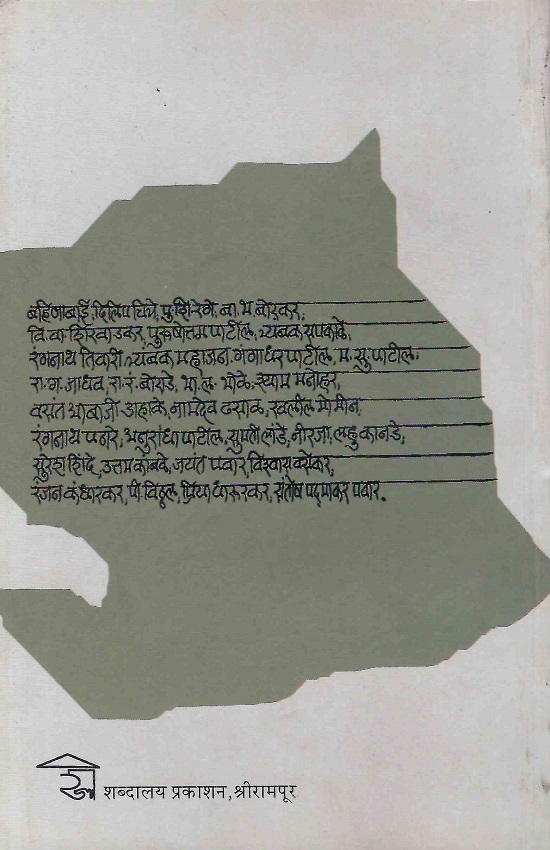 बहिणाबाई, दिलिप चित्रे, पु. शि. रेगे, बा. भ. बोरकर,
वि. वा. शिरवाडकर, पुरूषोत्तम पाटील, त्र्यंबक सपकाळे,
रंगनाथ तिवारी, त्र्यंबक महाजन, गंगाधर पाटील, म. सु. पाटील,
रा. ग. जाधव, रा. रं. बोराडे, भा. ल. भोळे, श्याम मनोहर,
वसंत आबाजी डहाके, नामदेव ढसाळ, खलील मोमीन,
रंगनाथ पठारे, अनुराधा पाटील, सुमती लांडे, नीरजा, लहू कानडे,
सुरेश शिंदे, उत्तम कांबळे, जयंत पवार, विश्वास वसेकर,
रंजन कंधारकर, पी. विठ्ठल, प्रिया धारूरकर, संतोष पद्माकर पवार.
शब्दालय प्रकाशन, श्रीरामपूर